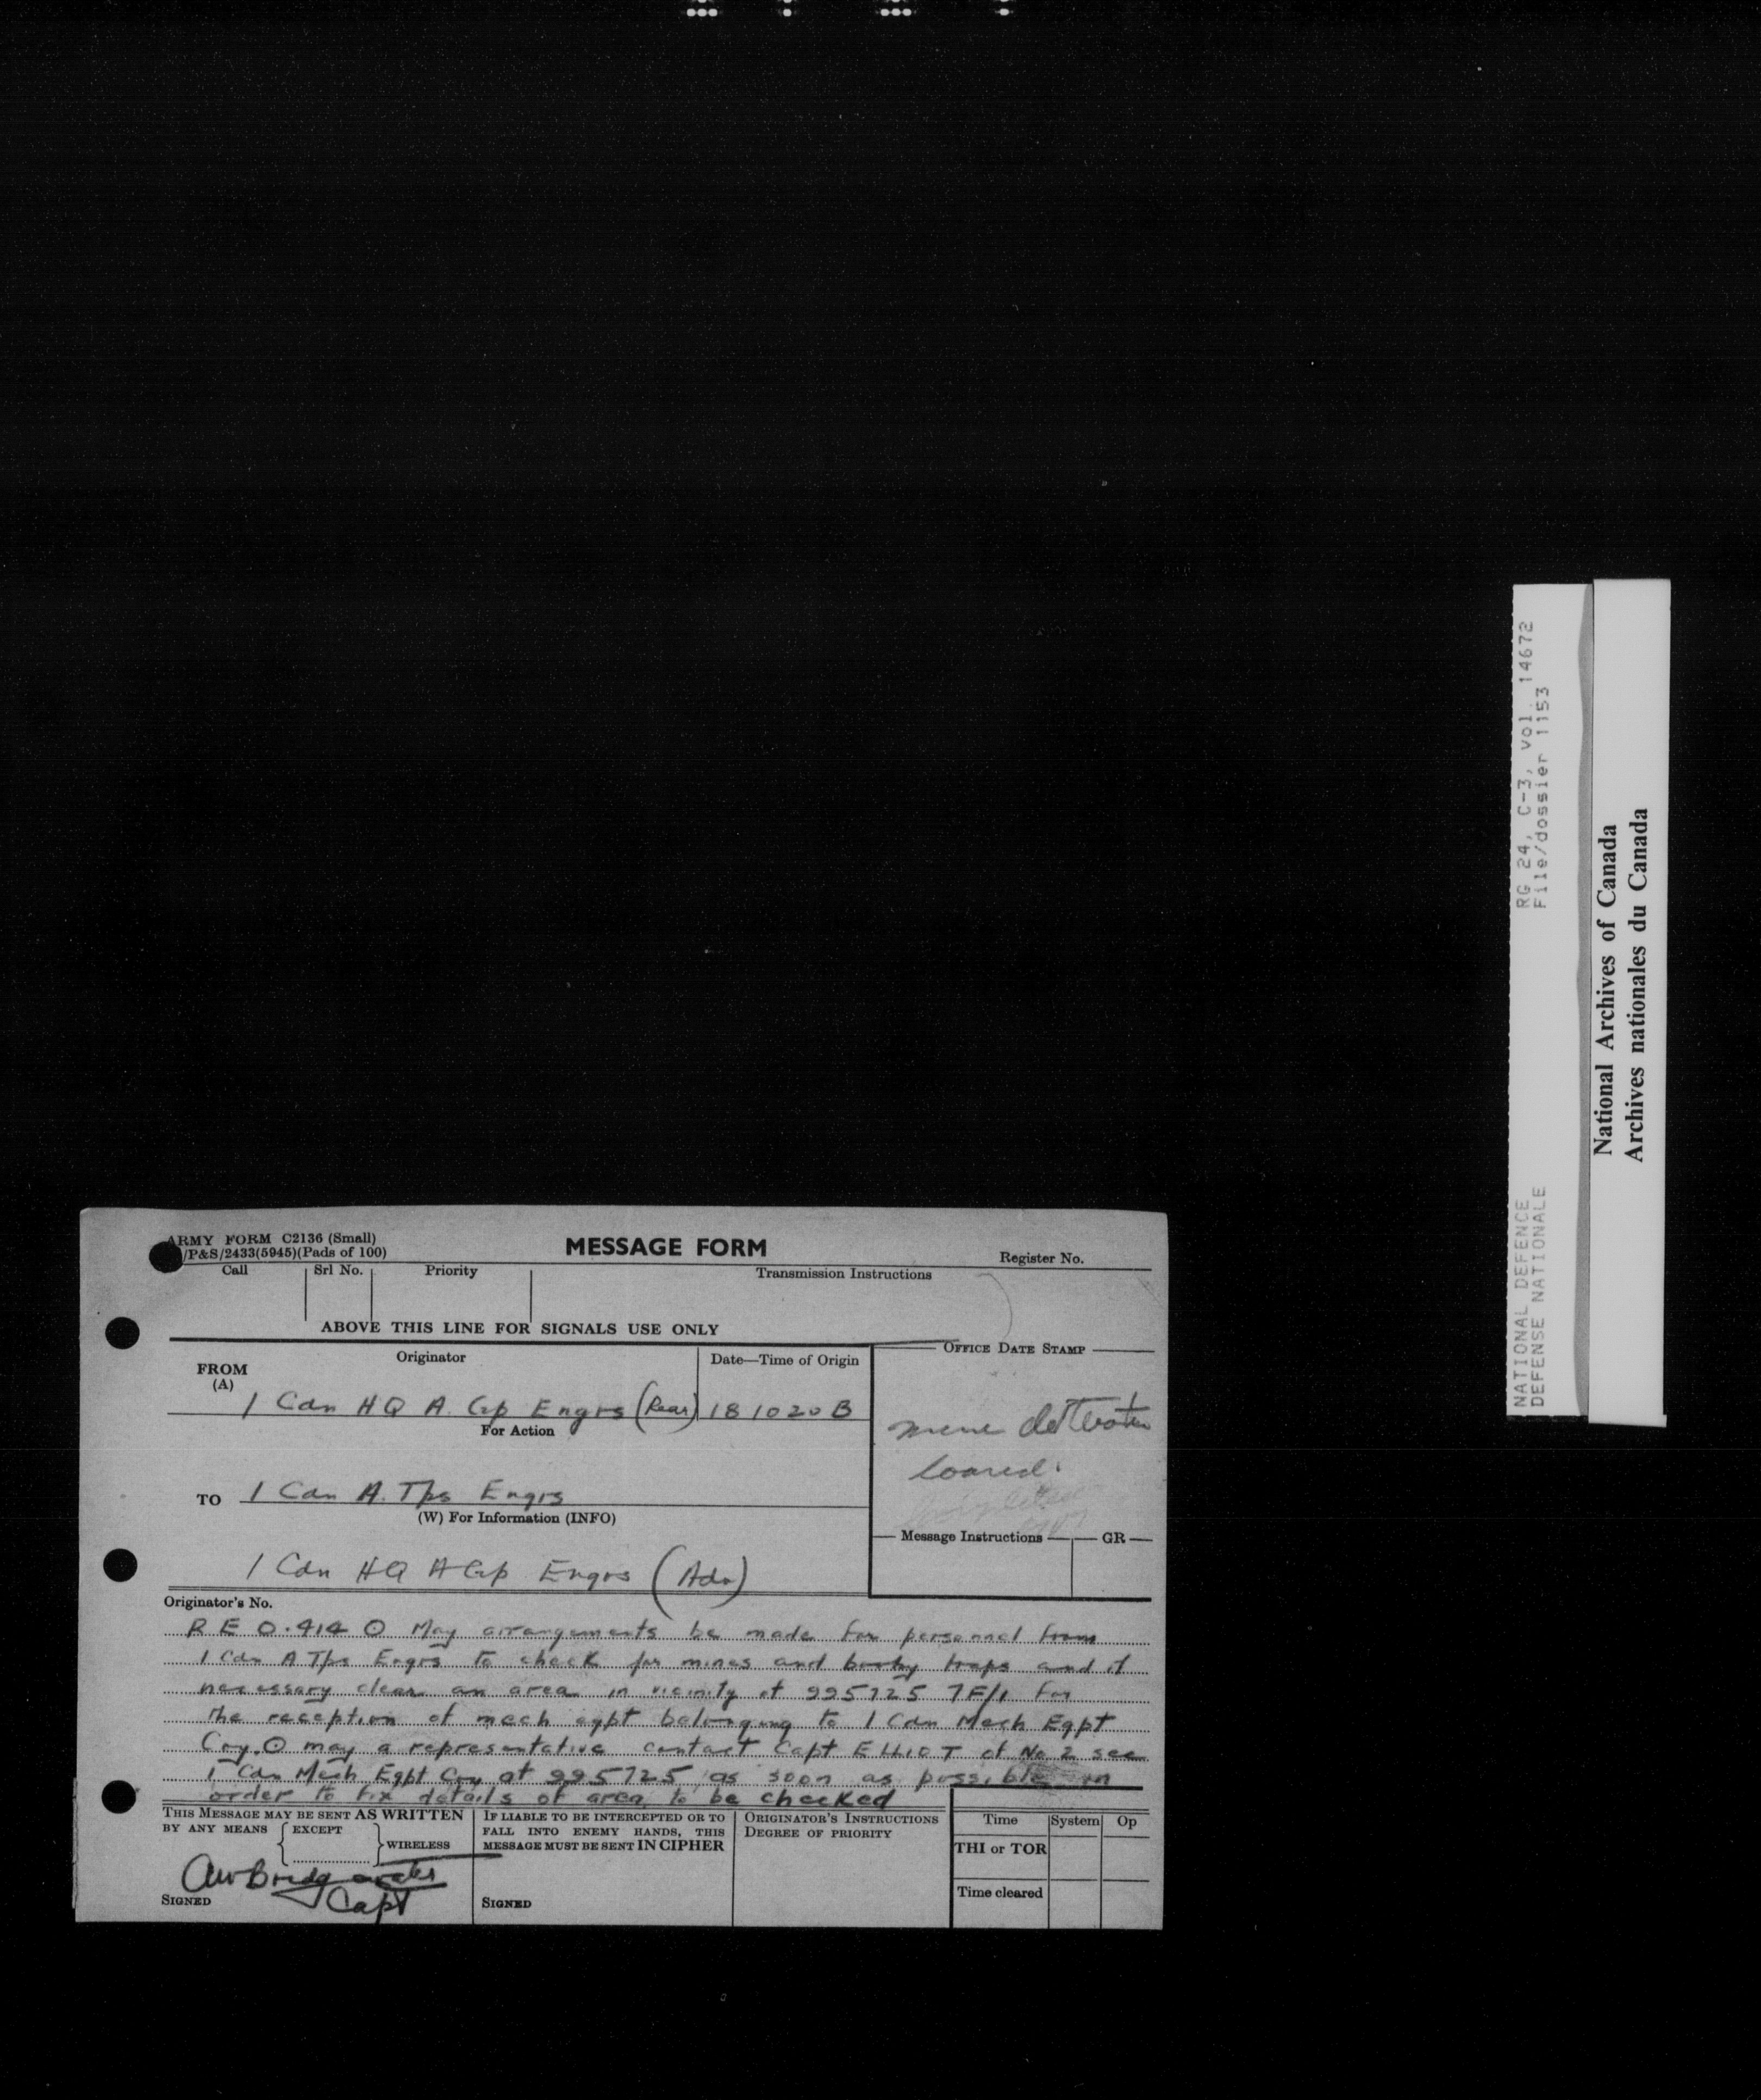 ARMY FORM C2136 (Small)
/P&S/2433(5945)(Pads of 100)
MESSAGE FORM
Register No.
Call Srl No. Priority Transmission Instructions
ABOVE THIS LINE FOR SIGNALS USE ONLY
FROM (A) Originator Date—Time of Origin
OFFICE DATE STAMP
1 Cdn HQ A Gp Engrs (Rear) 181020B
For Action
mine
loaned.
TO 1 Cdn A. Tps Engrs
(W) For Information (INFO)
Message Instructions GR
1 Cdn HQ A Gp Engrs (Adv)
Originator's No.
R E O.414 O May arrangements be made for personnel from
1 Cdn A Tps Engrs to check for mines and booby traps and if
necessary clear an area in vicinity of 995725 7F/1 for
the reception of mech eqpt belonging to 1 Cdn Mech Eqpt
Coy. O may a representative contact Capt ELLIOT of No 2 sec
1 Cdn Mech Eqpt Coy at 995725 as soon as possible in
order to fix details of area to be checked
THIS MESSAGE MAY BE SENT AS WRITTEN
BY ANY MEANS EXCEPT WIRELESS
IF LIABLE TO BE INTERCEPTED OR TO
FALL INTO ENEMY HANDS, THIS
MESSAGE MUST BE SENT IN CIPHER
ORIGINATOR'S INSTRUCTIONS
DEGREE OF PRIORITY
Time System Op
THI or TOR
Time cleared
SIGNED
Capt
SIGNED
RG 24, C-3, vol. 14672
File/dossier 1153
NATIONAL DEFENCE
DEFENSE NATIONALE
National Archives of Canada
Archives nationales du Canada